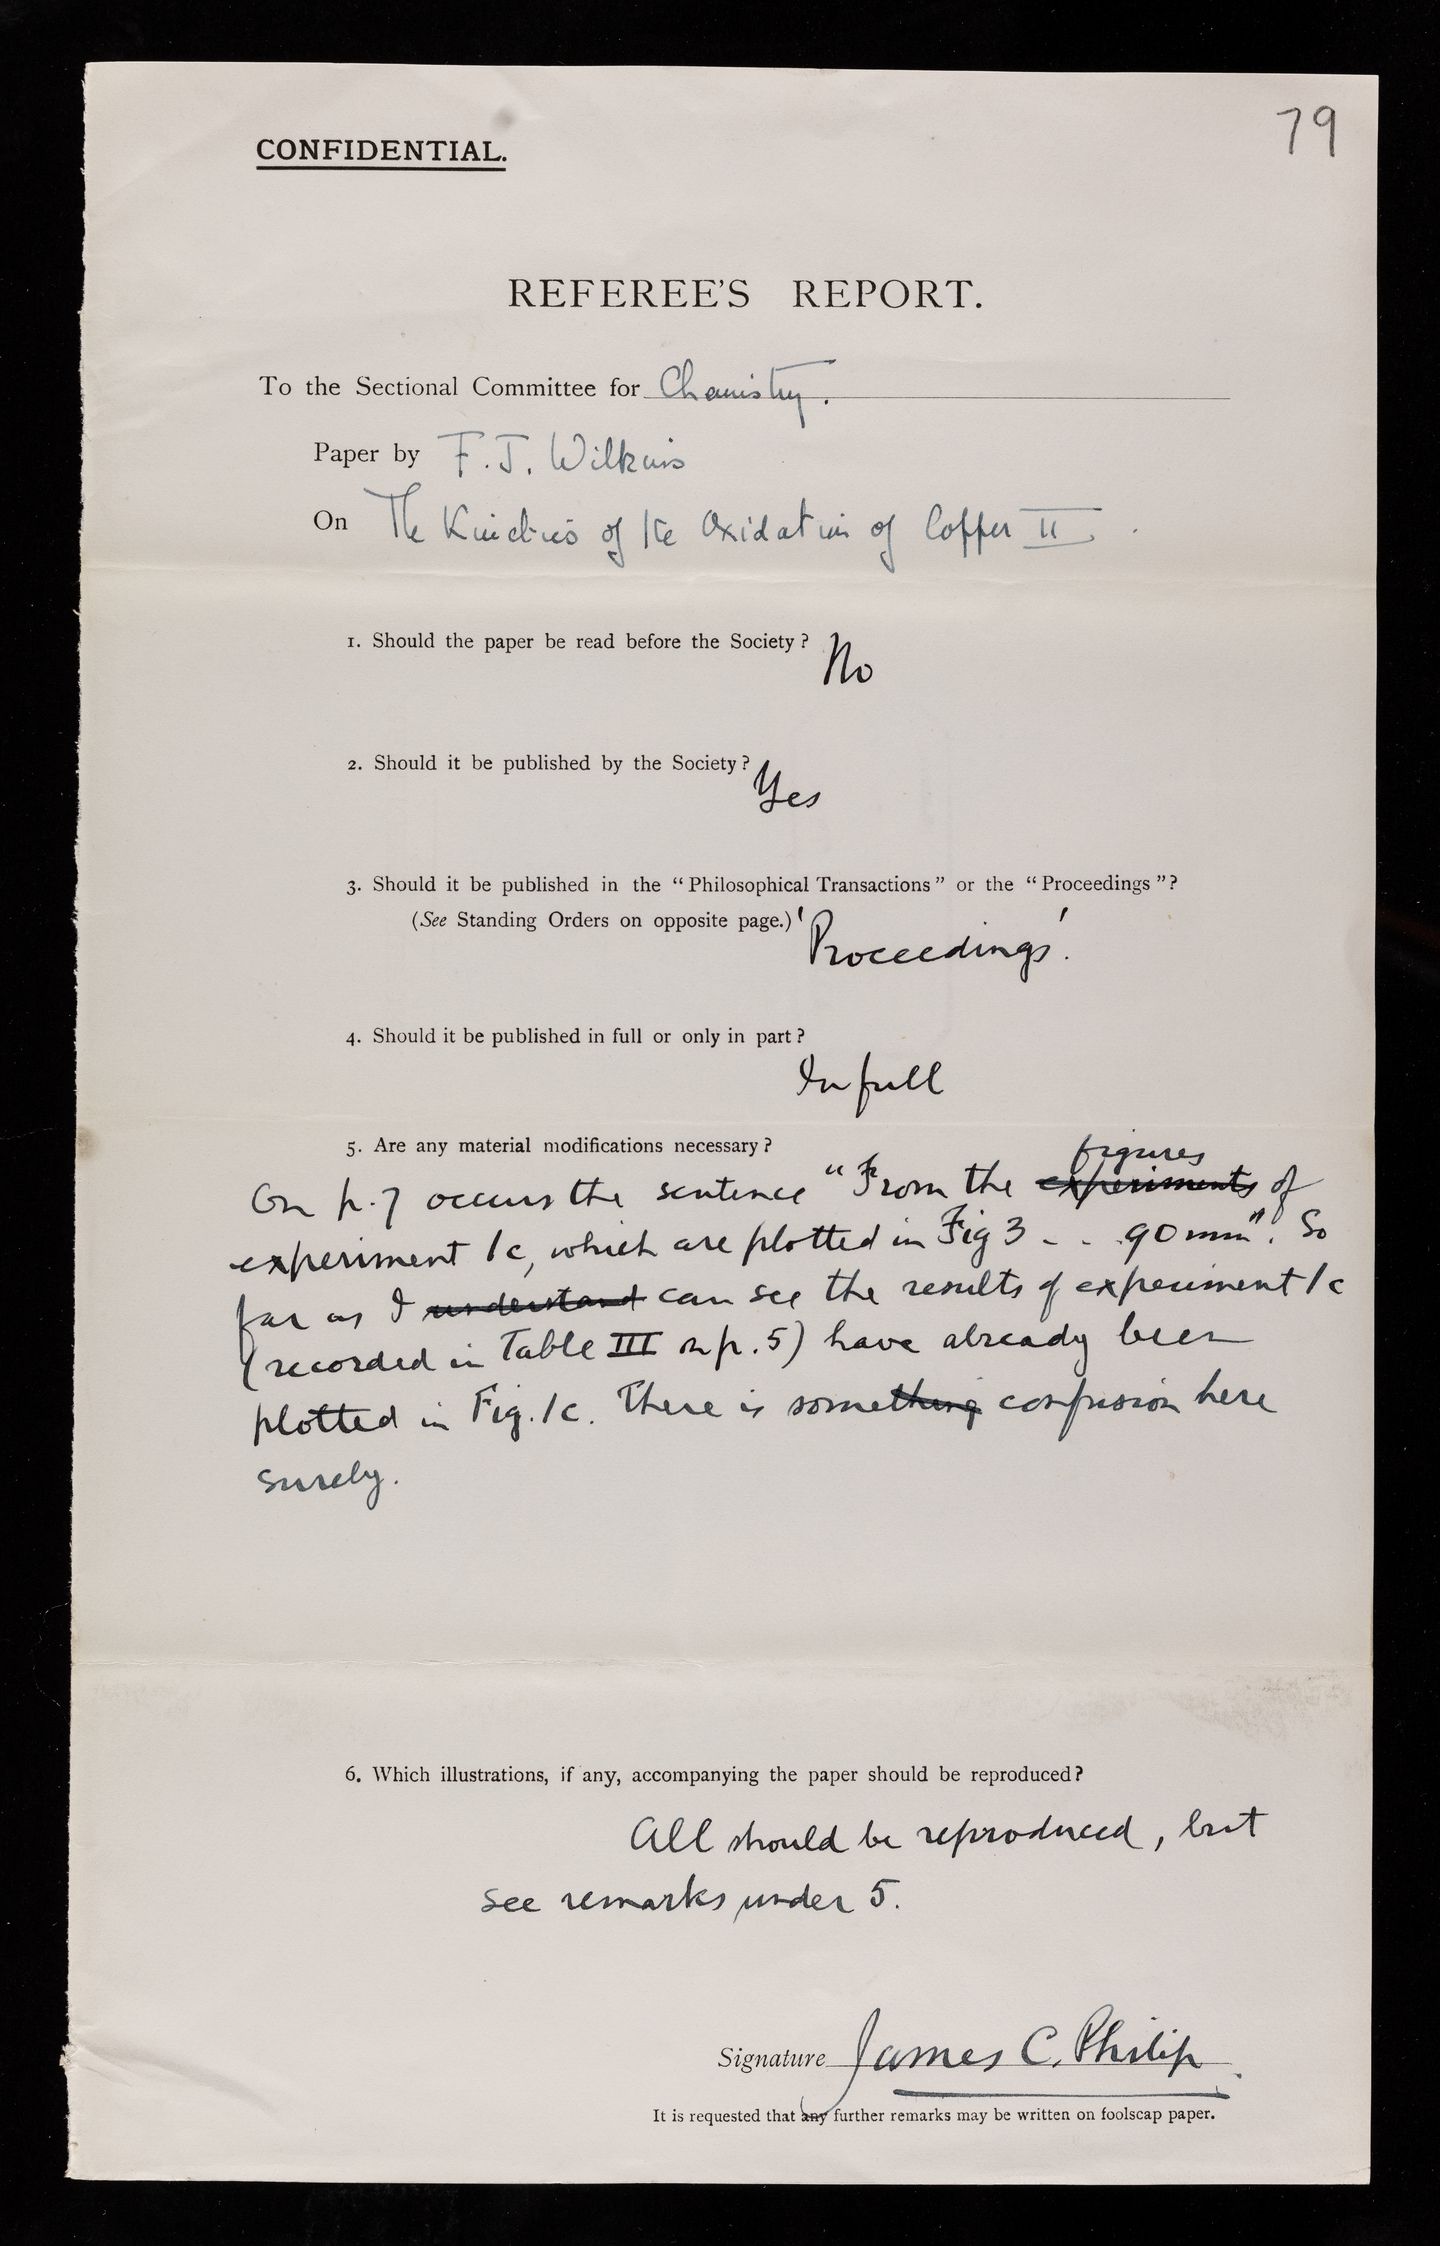 79
CONFIDENTIAL.
REFEREE'S REPORT.
To the Sectional Committee for Chemistry.
Paper by F. J. Wilkins
On The Kinetics of the Oxidation of Copper II.
1. Should the paper be read before the Society? No
2. Should it be published by the Society? Yes
3. Should it be published in the "Philosophical Transactions" or the "Proceedings"?
(See Standing Orders on opposite page.) 'Proceedings'.
4. Should it be published in full or only in part?
In full
5. Are any material modifications necessary?
figures
On p. 7 occurs the sentence "From the experiments of
experiment 1c, which are plotted in Fig 3 - - 90 mm". So
far as I understand can see the results of experiment 1c
(recorded in Table III on p. 5) have already been
plotted in Fig. 1c. There is something confusion here
surely.
6. Which illustrations, if any, accompanying the paper should be reproduced?
All should be reproduced, but
see remarks under 5.
Signature James C. Philip
It is requested that any further remarks may be written on foolscap paper.